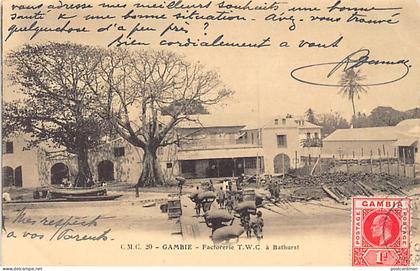 vous adresse mes meilleurs souhaits une bonne
Santé & une bonne situation – Avez-vous trouvé
quelquechose d'a peu près ?
Bien cordialement a vous
Mes respects
a vos Parents
C.M.C. 20 - GAMBIE - Factorerie T.W.C. à Bathurst
GAMBIA
POSTAGE
POSTAGE
1D
postcardman